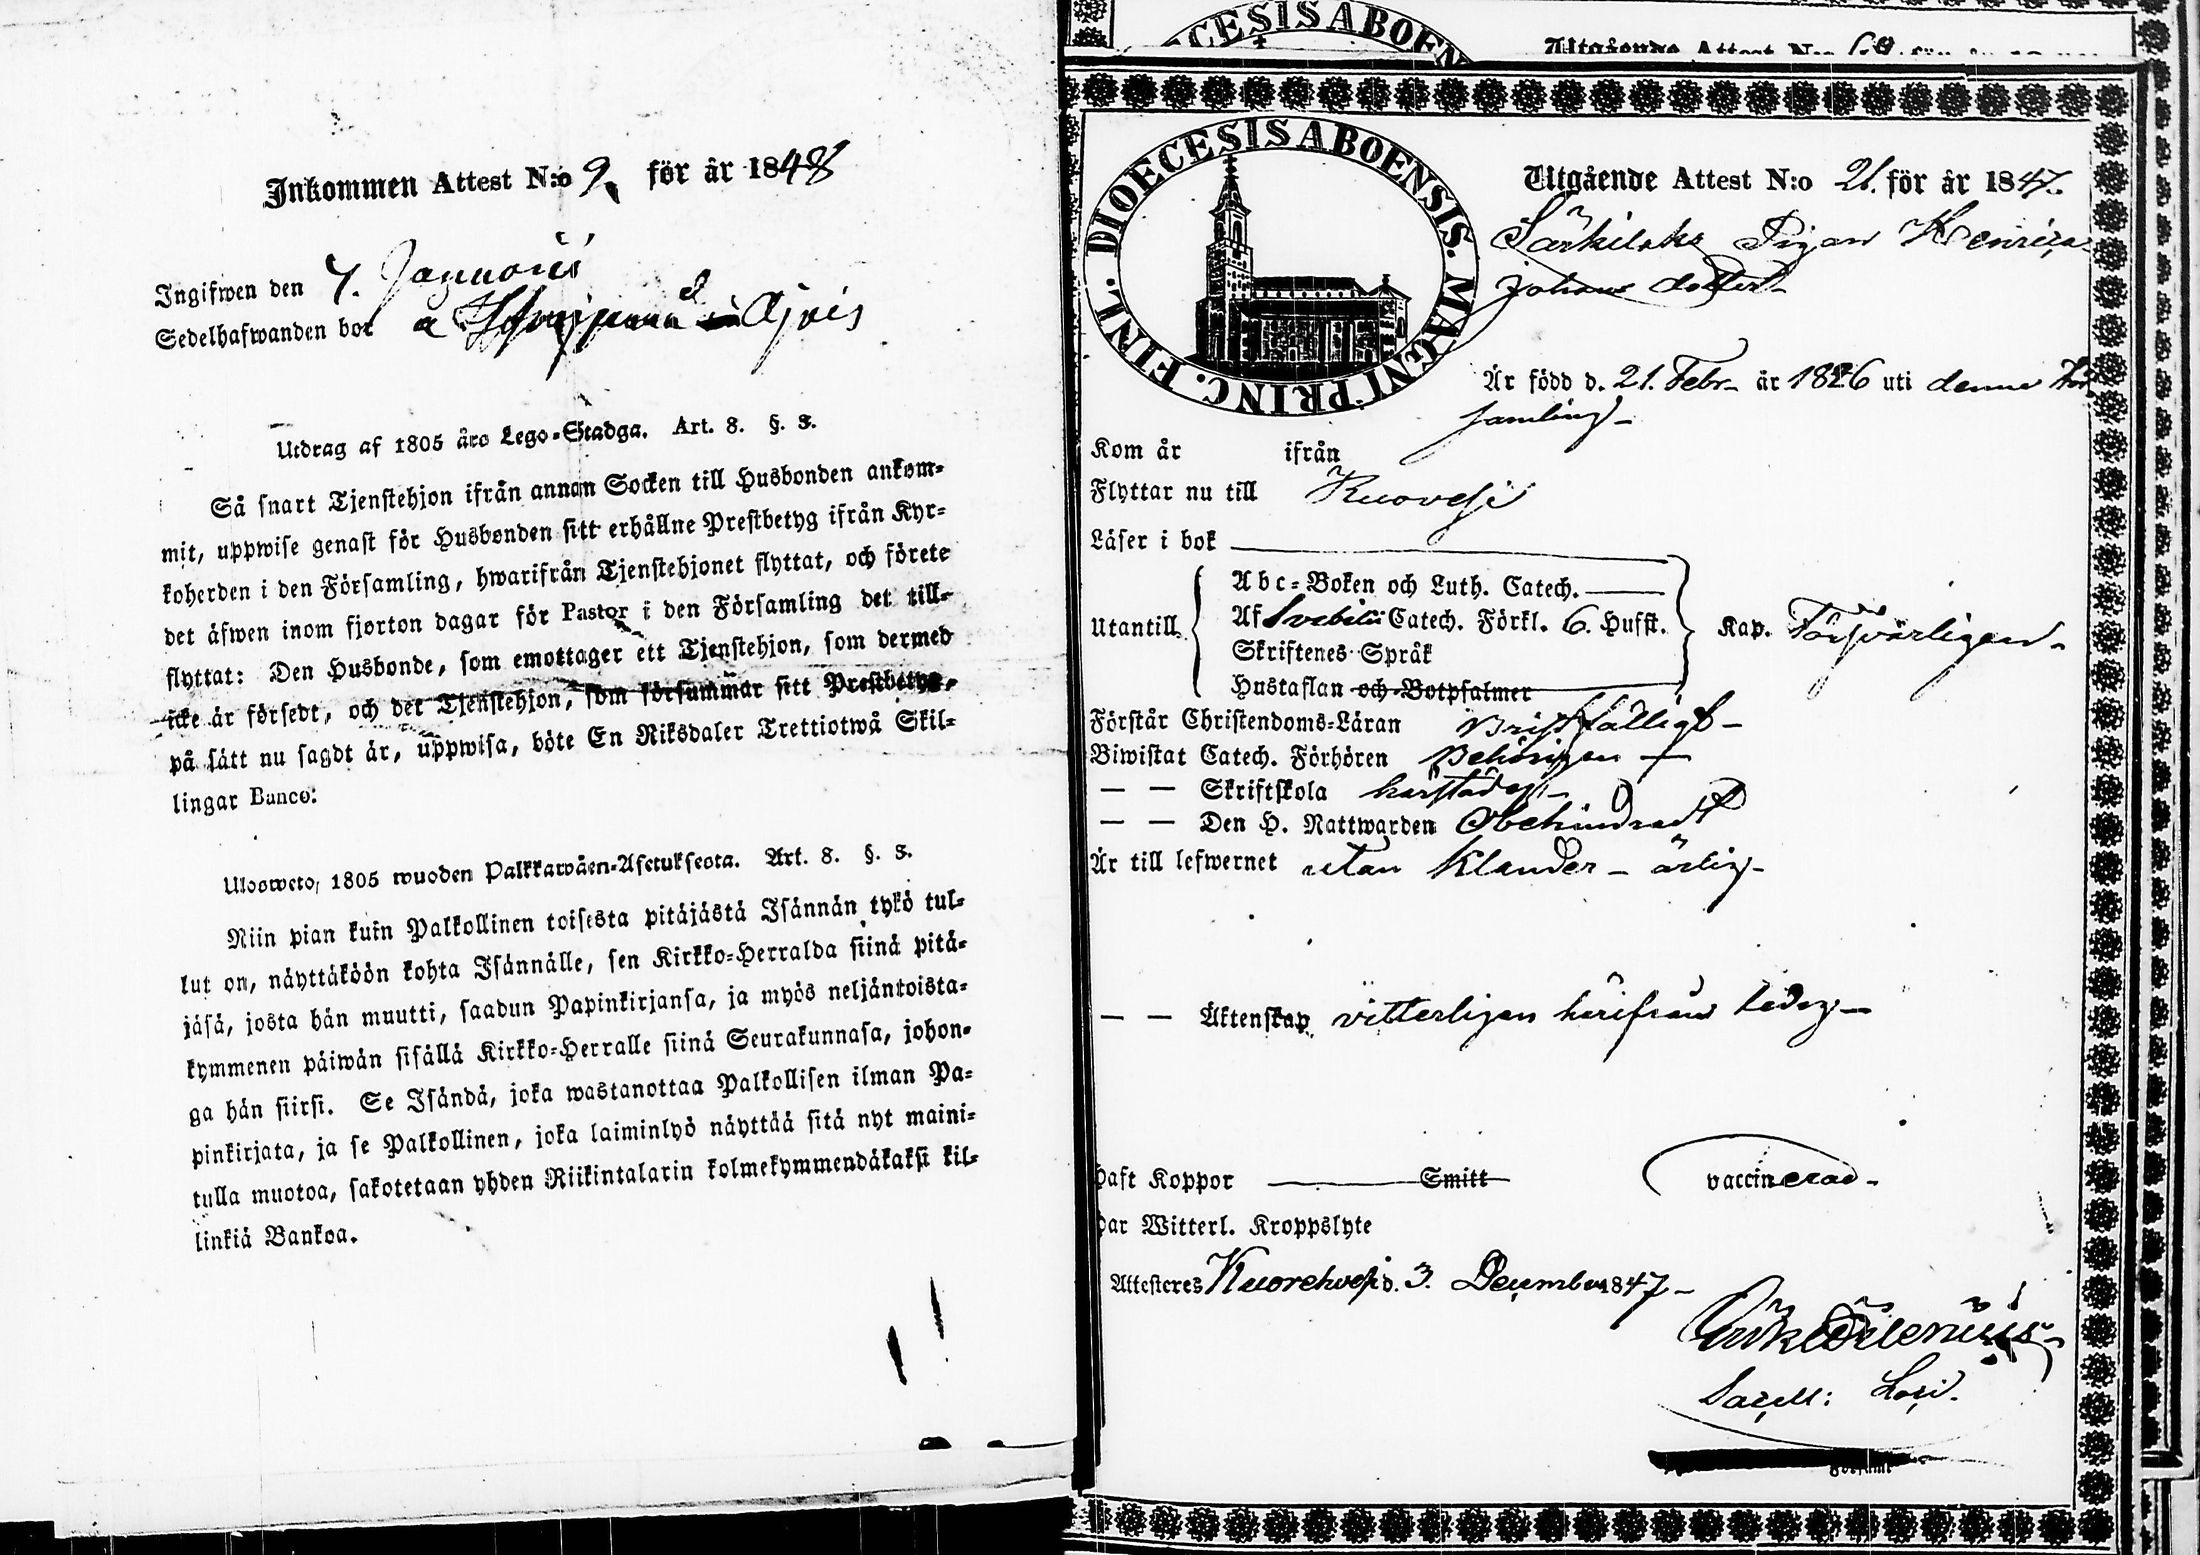 Inkommen Attest N:o 9. för år 1848
Ingifwen den 7. Januarii
Sedelhafwanden bor å
Utdrag af 1805 års Lego-Stadga. Art. 8. §. 3.
Så snart Tjenstehjon ifrån annan Socken till Husbonden ankom-
mit, uppwise genast för Husbonden sitt erhållne Prestbetyg ifrån Kyr-
koherden i den Församling, hwarifrån Tjenstehjonet flyttat, och förete
det äfwen inom fjorton dagar för Pastor i den Församling det till-
flyttat: Den Husbonde, som emottager ett Tjenstehjon, som dermed
icke är försedt, och det Tjenstehjon, som försummar sitt Prestbetyg,
på sätt nu sagdt är, uppwisa, böte En Riksdaler Trettiotwå Skil-
lingar Banco.
Ulosweto, 1805 wuoden Palkkawäen-Asetuksesta. Art. 8. §. 3.
Niin pian kuin Palkollinen toisesta pitäjästä Isännän tykö tul-
lut on, näyttäköön kohta Isännälle, sen Kirkko-Herralda siinä pitä-
jäsä, josta hän muutti, saadun Papinkirjansa, ja myös neljäntoista-
kymmenen päiwän sisällä Kirkko-Herralle siinä Seurakunnasa, johon-
ga hän siirsi. Se Isändä, joka wastanottaa Palkollisen ilman Pa-
pinkirjata, ja se Palkollinen, joka laiminlyö näyttää sitä nyt maini-
tulla muotoa, sakotetaan yhden Riikintalarin kolmekymmendäkaksi kil-
linkiä Bankoa.
Utgående Attest N:o 69
DIOECESIS ABOENSIS. MAGNI PRINC. FINL.
Utgående Attest N:o 21. för år 1847.
Särkilaks Pigan Henrica
Johans dotter
Är född d. 21. Febr. år 1826 uti denna För
samling
Kom år ifrån
Flyttar nu till Kuovesi
Läser i bok
Utantill
Abc-Boken och Luth. Catech.
Af Svebilii Catech. Förkl. 6. Hufst.
Skriftenes Språk
Hustaflan och Botpsalmer
Kap. Försvarligen
Förstår Christendoms-Läran Bristfälligt
Biwistat Catech. Förhören Behörigen
— — Skriftskola härstädes
— — Den H. Nattwarden Obehindradt
Är till lefwernet utan klander - ärlig
— — Äktenskap vitterligen härifrån ledig
Haft Koppor Smitt vaccinerad
Har Witterl. Kroppslyte
Attesteras Kuorehvesi d. 3. December 1847
Sacell: